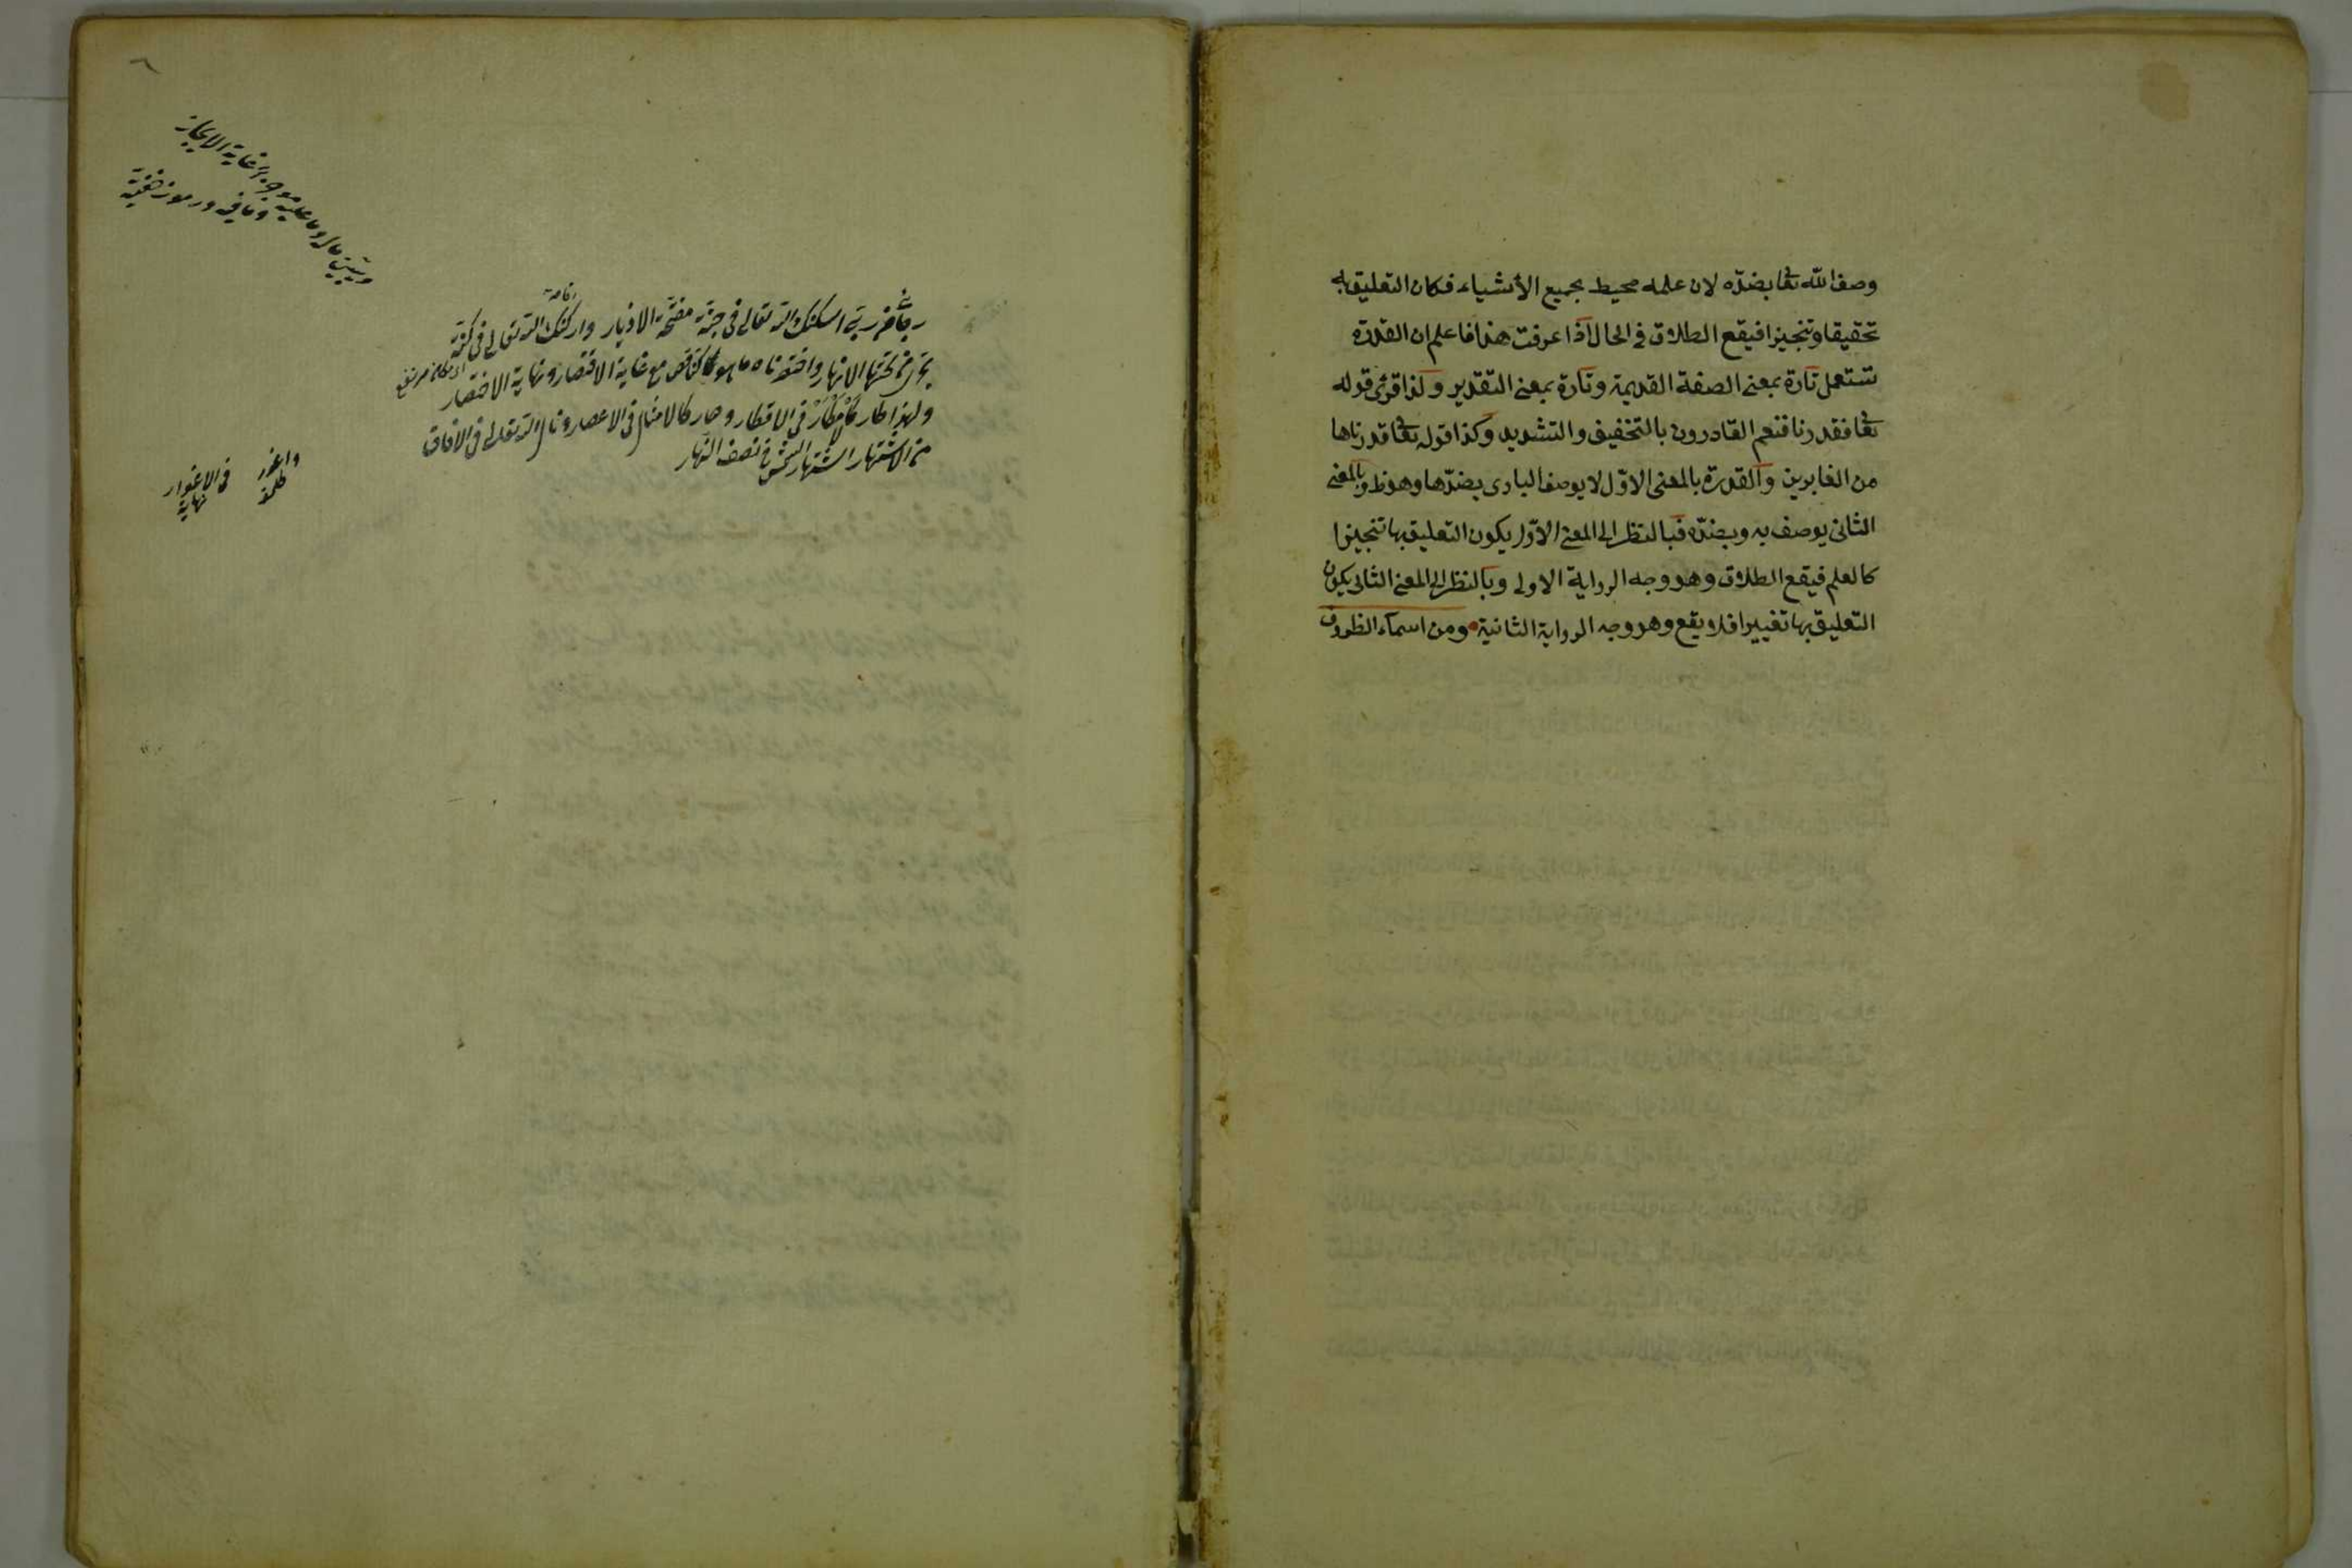 وصف الله تعا بضده لان علمه محيط بجميع الأشياء فكان التعليق به
تحقيقا وتنجيزا فيقع الطلاق في الحال اذا عرفت هذا فاعلم ان القدرة
تستعمل تارة بمعنى الصفة القديمة وتارة بمعنى التقدير ولذا قرئ قوله
تعا فقدرنا فنعم القادرون بالتخفيف والتشديد وكذا قوله تعا قدرناها
من الغابرين والقدرة بالمعنى الاوّل لا يوصف البارى بضدّها وهو ظ وبالمعنى
الثانى يوصف به وبضدّه فبالنظر الى المعنى الاوّل يكون التعليق بها تنجيزا
كالعلم فيقع الطلاق وهو وجه الرواية الاولى وبالنظر الى المعنى الثانى يكون
التعليق بها تغييرا فلا يقع وهو وجه الرواية الثانية ومن اسماء الظروف
اسكنك الله تعالى فى جنّة مفتحة الا
تجرى من تحتها الانهار واختصرناه مع غاية الاقتصار ونهاية الاختصار
ولهذا طار فى الاقطار وصار كالامثال فى الاعصار ونال الله تعالى فى الافاق
من الاشتهار اشتهار الشمس فى نصف النهار
غاية الايجاز
وما فيه ورموز خفية
فى الاغوار
نهاية